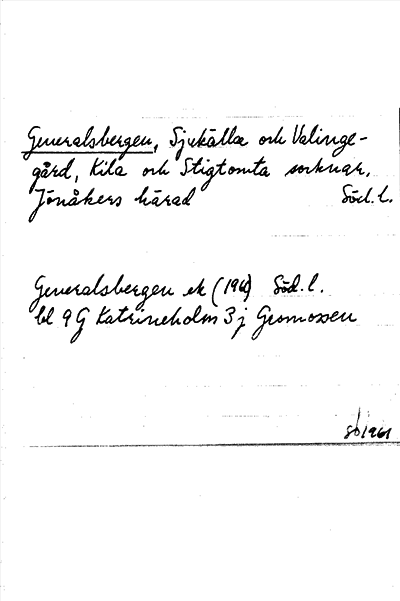 Generalsbergen, Sjukälla och Valinge-
gård, Kila och Stigtomta socknar,
Jönåkers härad Söd.l.
Generalsbergen ek (1960) Söd.l.
bl 9G Katrineholm 3j Gromossen
1961